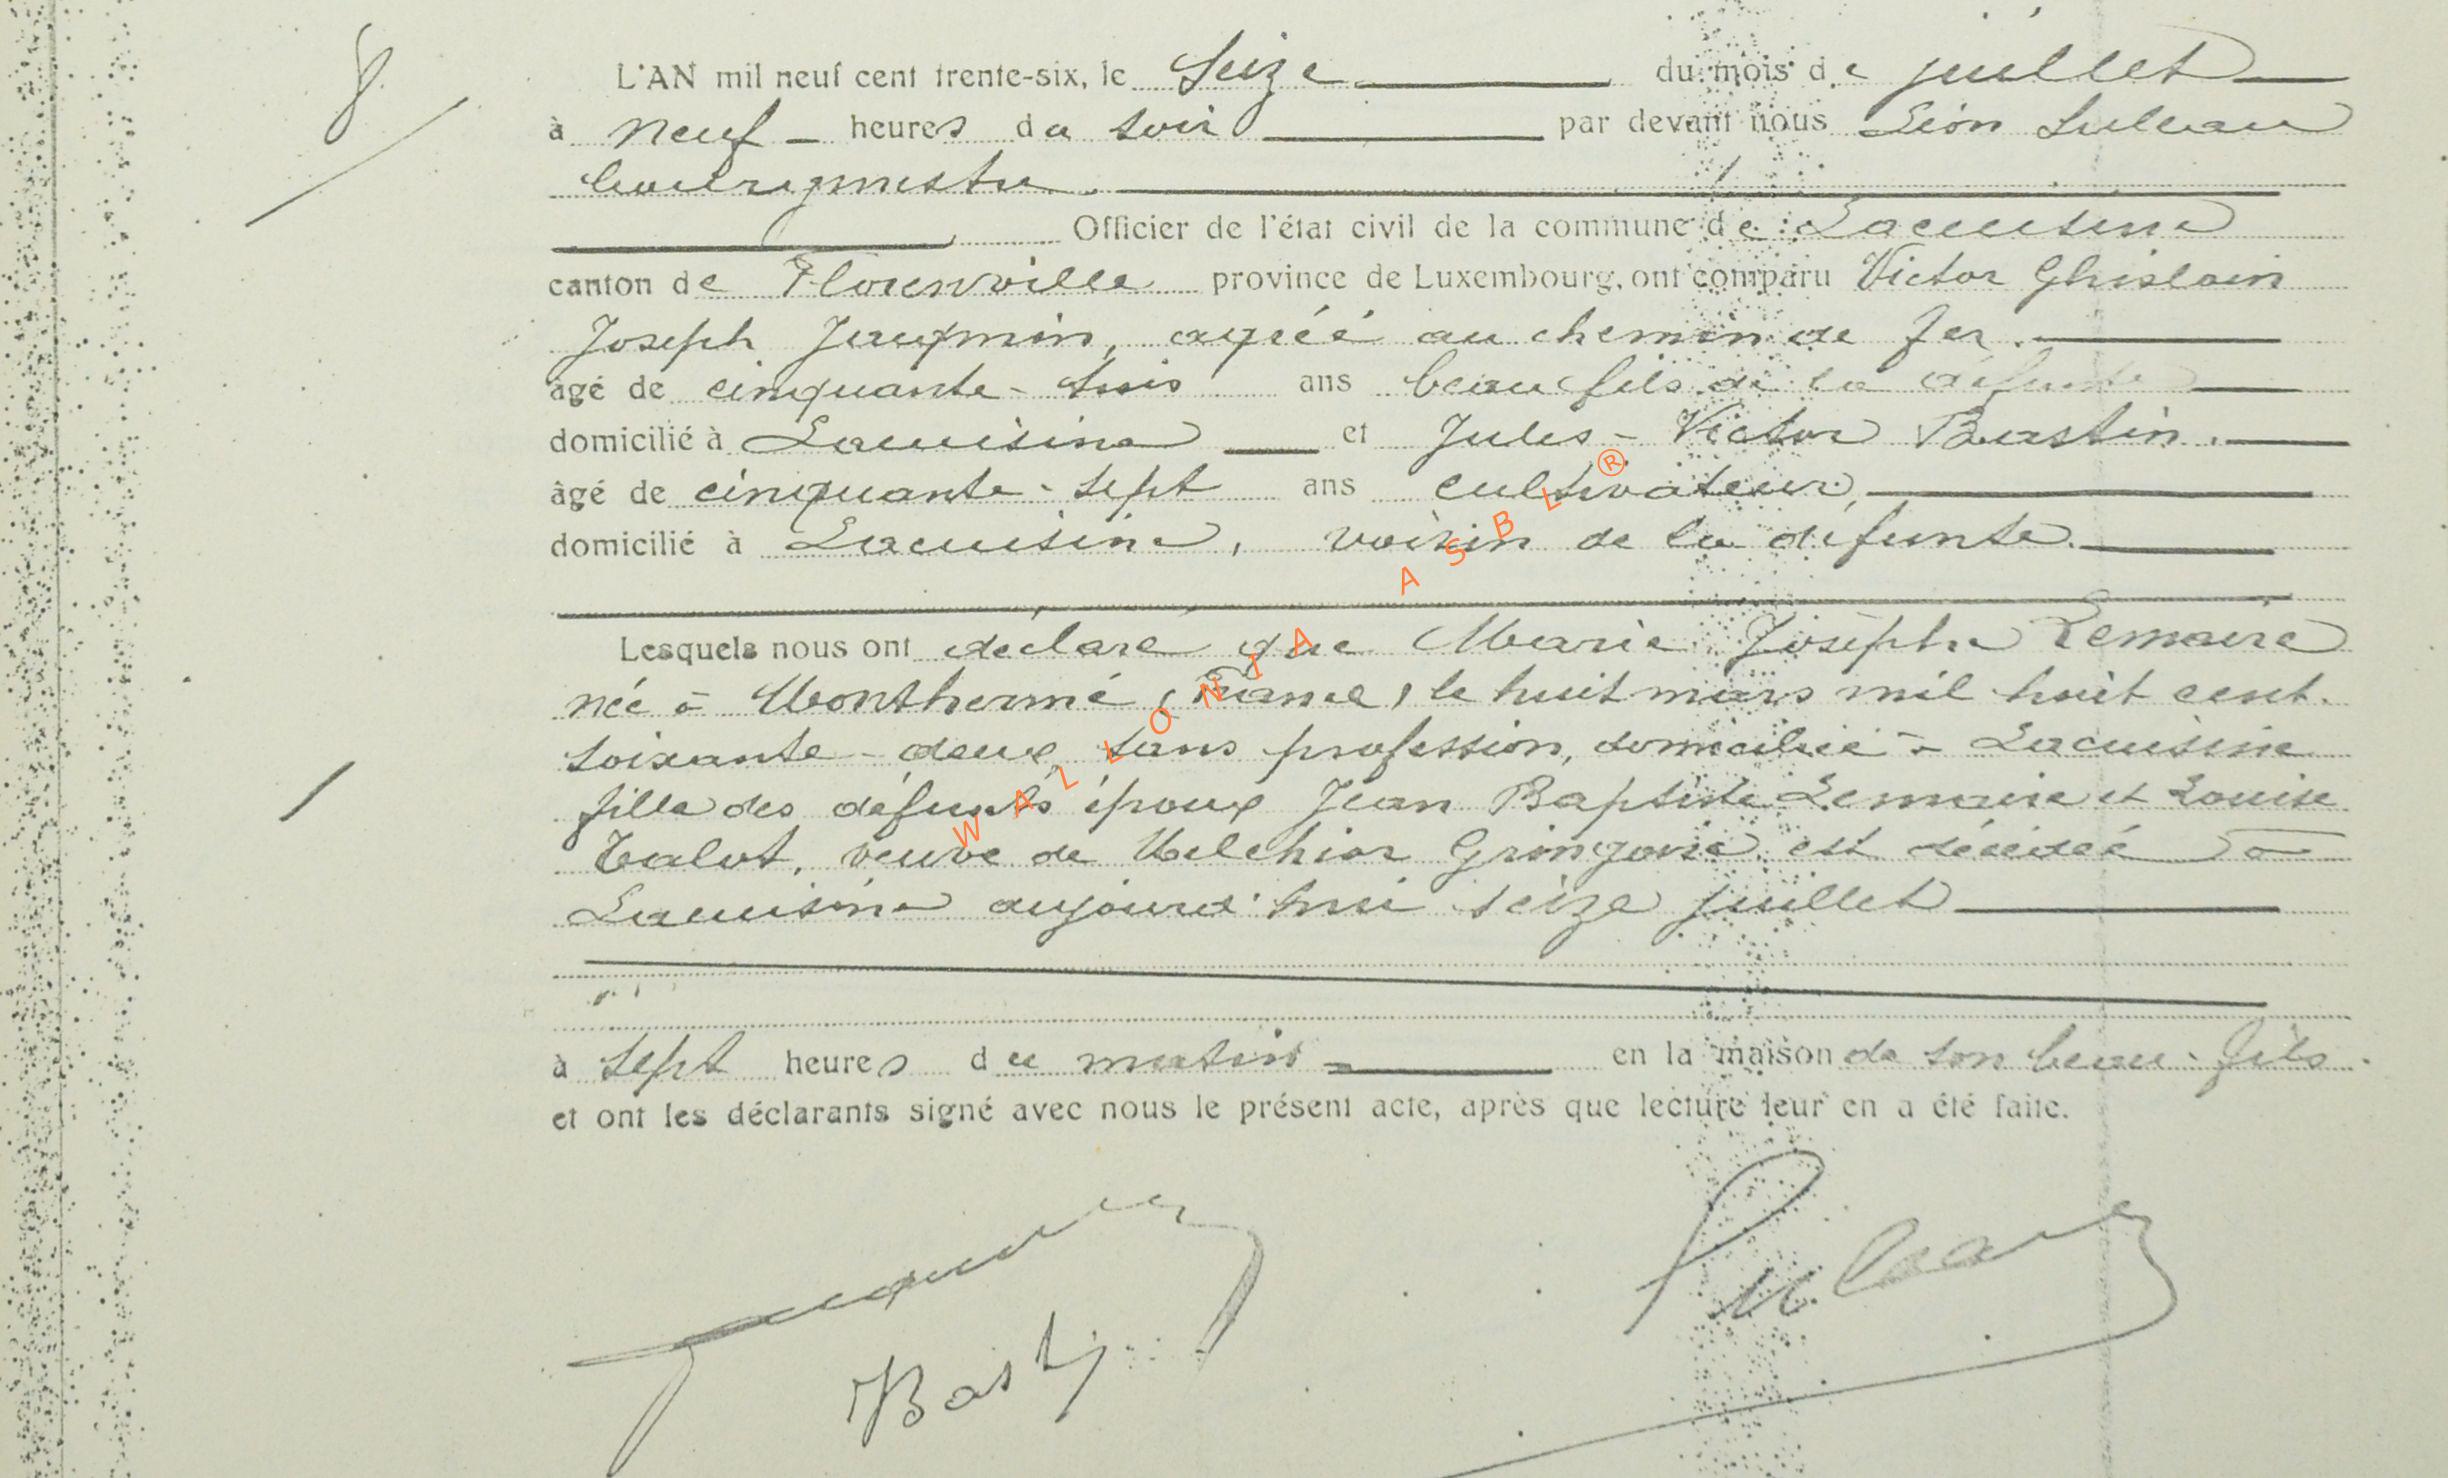 8
L'AN mil neuf cent trente-six, le Seize du mois de juillet
à neuf heures du soir par devant nous Léon
bourgmestre
Officier de l'état civil de la commune de Lacuisine
canton de Florenville province de Luxembourg, ont comparu Victor Ghislain
Joseph Jaupmin, agréé au chemin de fer.
âgé de cinquante-trois ans beau fils de la défunte
domicilié à Lacuisine et Jules-Victor Bastin.
âgé de cinquante-sept ans cultivateur,
domicilié à Lacuisine, voisin de la défunte.
Lesquels nous ont déclaré que Marie Josèphe Lemaire
née à Monthermé (France) le huit mars mil huit cent.
soixante-deux, sans profession, domiciliée à Lacuisine
fille des défunts époux Jean Baptiste Lemaire et Louise
Talot, veuve de Melchior Gringoire, est décédée à
Lacuisine aujourd'hui seize juillet
à sept heures du matin en la maison de son beau-fils.
et ont les déclarants signé avec nous le présent acte, après que lecture leur en a été faite.
Bastin
WALLONIA ASBL®